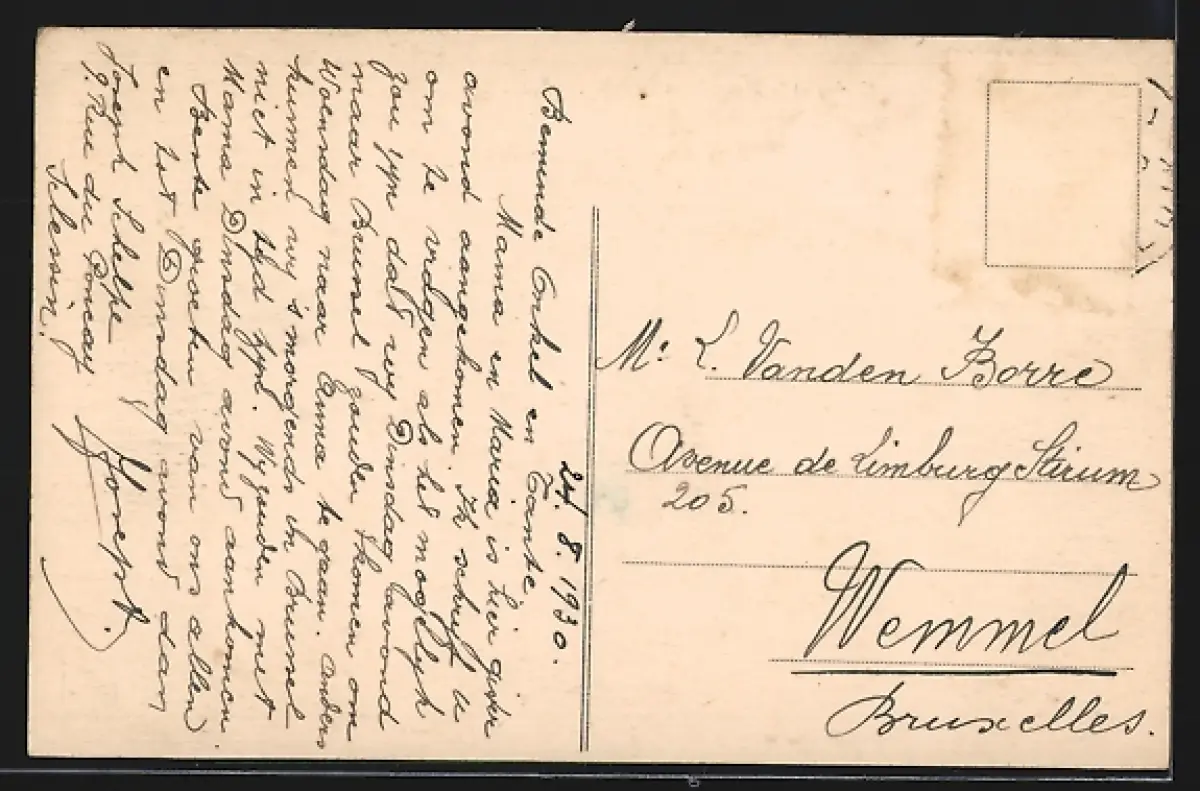 24. 8. 1930.
Beminde Onkel en Tante
Mama en Maria is hier gister
avond aangekomen. Ik schrijf u
om te vragen als het mooglyk
zou zyn dat wy Dinsdag avond
naar Brussel zouden komen om
Woensdag naar Emma te gaan. anders
kunnen wy s'morgends in Brussel
niet in tyd zyn. Wy zouden met
Mama Dinsdag avond aankomen.
Beste groeten van ons allen
en tot Dinsdag avond dan
Joseph Schelpe
19 Rue du
Sclessin.
Joseph.
Mr. L. Vanden Borre
Avenue de Limburg Stirum
205.
Wemmel
Bruxelles.